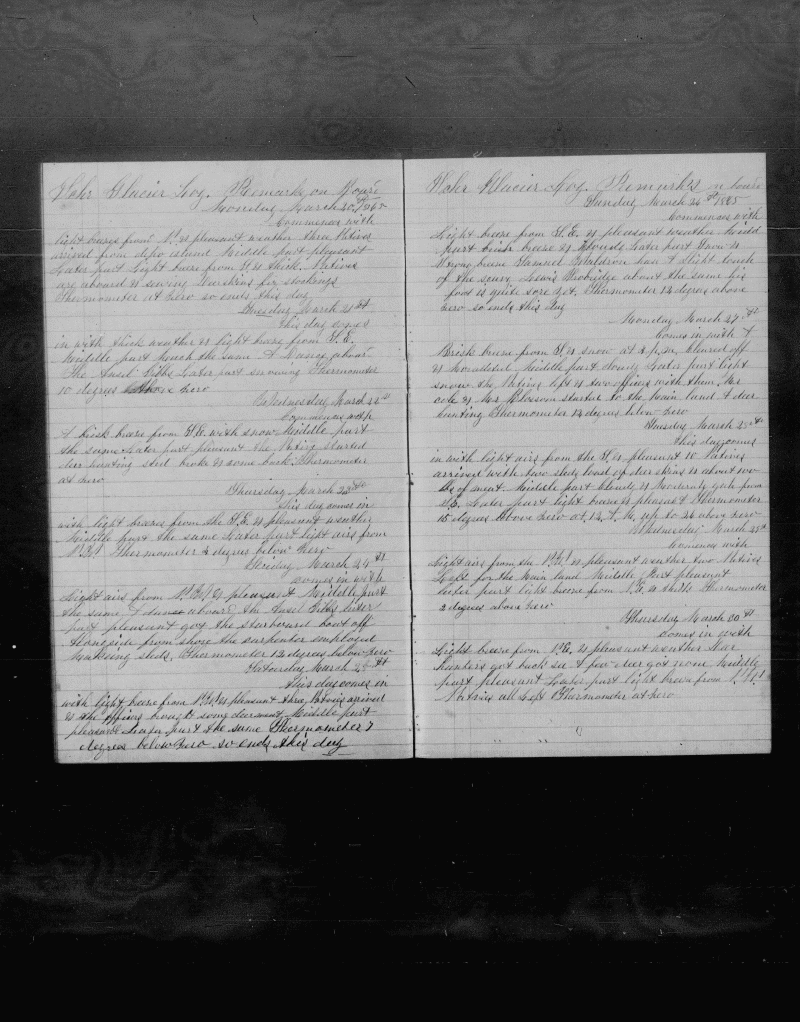 Glacier Log. Remarks on Board
Monday March 20th 1865
Commences with
light breeze from N. & pleasant weather three Natives
arrived from depo island Middle part pleasant
Later part Light breeze from & thick. Natives
are aboard & sewing stockings
Thermometer at zero so ends this day
Tuesday March 21st
This day comes
in with thick weather & light breeze from S.E.
Middle part much the same A Dance abourd
the Ansel Gibbs Later part snowing Thermometer
10 degrees above zero
Wednesday March 22th
Commences with
A brisk breeze from S.E. with snow Middle part
the same Later part pleasant the Natives started
deer hunting sled broke & some back. Thermometer
at zero
Thursday March 23th
this day comes in
with light breeze from the S.E. & pleasant weather
Middle part the same Later part light airs from
N.W. Thermometer 2 degrees below zero
Friday March 24th
comes in with
Light airs from N.W. & pleasant Middle part
the same A dance abourd the Ansel Gibbs later
part pleasant got the starboard boat off
Alongside from shore the carpenter employed
Making sleds. Thermometer 12 degrees below zero
Saturday March 25th
this day comes in
with light breeze from N.W. & pleasant three Natives arrived
& the brought some deer meat Middle part
pleasant Later part the same Thermometer 7
degrees below zero so ends this day
Glacier Log. Remarks on board
Sunday March 26th 1865
Commences with
Light breeze from S.E. & pleasant weather Midd
part brisk breeze & Clouds Later part Thick &
Strong breeze Samuel Waldron has A slight touch
of the scurvy Lewis about the same his
foot is quite sore yet. Thermometer 12 degrees above
zero so ends this day
Monday March 27th
Comes in with A
Brisk breeze from & snow at 3 p.m. Cleared off
& Moderated Middle part cloudy Later part light
snow the Natives left & two officers with them Mr
Cole & Mr Blossom started to the Main land A deer
hunting Thermometer 12 degrees below zero
Tuesday March 28th
this day comes
in with light airs from the & pleasant 10 Natives
arrived with two sleds load of deer skins & about 100
lbs of meat Middle part cloudy & Moderate gale from
S.E. Later part light breeze & pleasant Thermometer
15 degrees above zero at 12 A. M. up to 26 above zero
Wednesday March 29th
Comences with
Light airs from the N.W. & pleasant weather two Natives
Left for the Main land Middle Part pleasant
Later part light breeze from Thermometer
2 degrees above zero
Thursday March 30th
Comes in with
Light breeze from N.E. & pleasant weather Our
hunters got back saw A few deer got none Middle
part pleasant Later part light breeze from N.W.
Natives all left Thermometer at zero